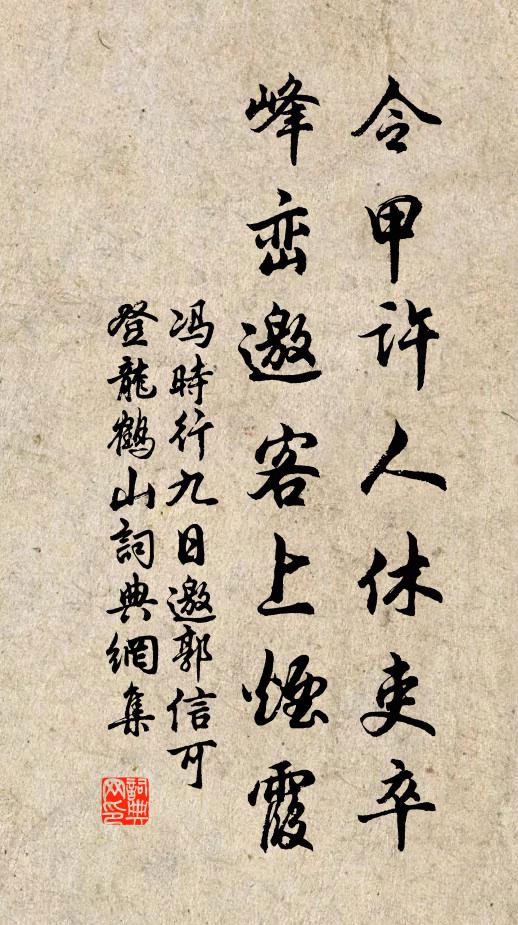 令甲許人休吏卒
峰峦邀客上煙霞
冯時行九日邀郭信可
登龍鶴山詞典網集
詞典
网印